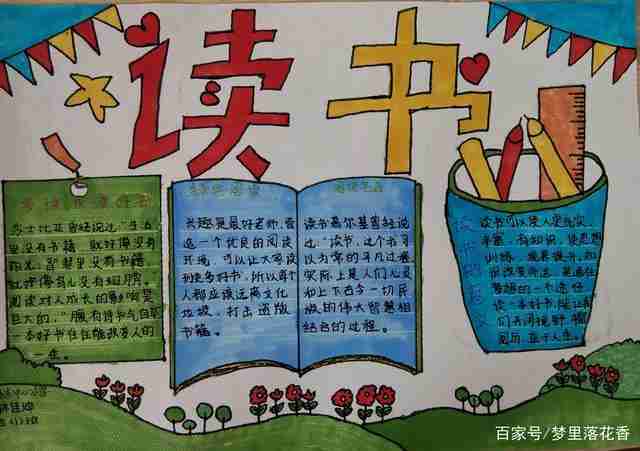 读书
莎士比亚曾经说过，"生活
里没有书籍，就好像没有
阳光，智慧里没有书籍，
就好像鸟儿没有翅膀。
阅读对人成长的影响是
巨大的，"腹有诗书气自华
一本好书往往能改变人的
一生。
兴趣是最好老师，营
造一个优良的阅读
环境，可以让大家读
到更多好书，所以每个
人都应该远离文化
垃圾，打击盗版
书籍。
读书高尔基曾经说
过："读书，这个我习
以为常的平凡过程，
实际上是人们心灵
和上下古今一切民
族的伟大智慧相
结合的过程。
读书可以使人更充实，
丰富，有知识，使思想
训练，观
想的一个途径。
读一本好书，能让我
们关阔视野，
百家号/梦里落花香